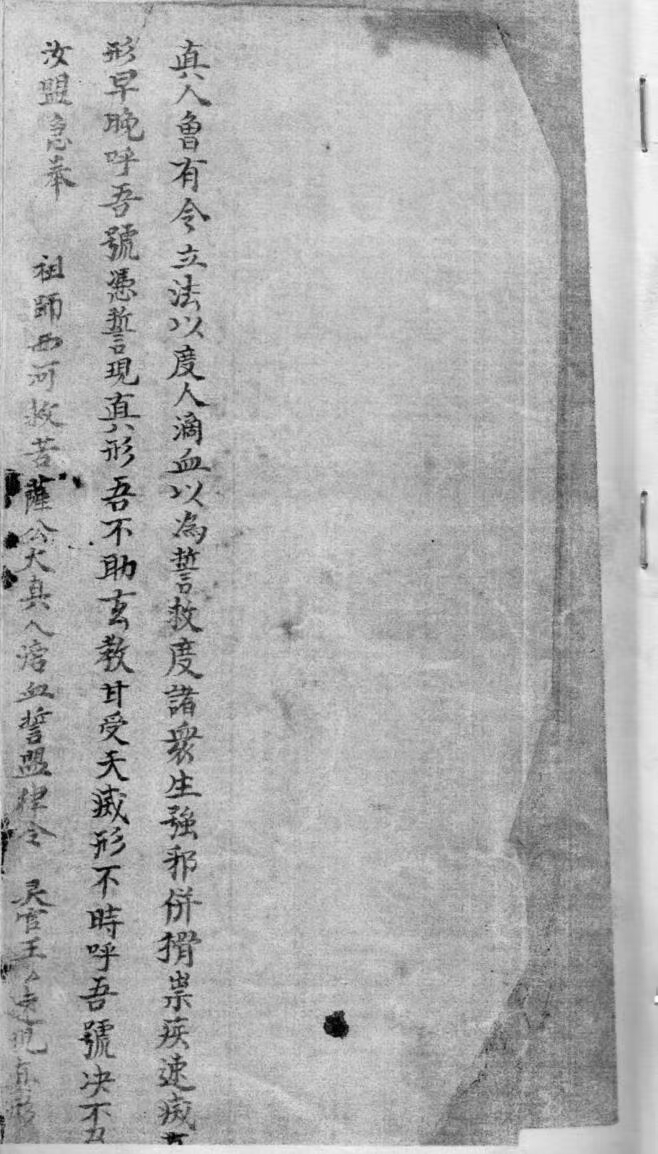 真人魯有令立法以度人滴血以為誓救度諸衆生強邪併猾祟疾速滅
形早晚呼吾號憑誓現真形吾不助玄教甘受天滅形不時呼吾號决不
汝盟急奉 祖師西河救苦薩公大真人滂血誓盟律令 灵官王〻速現真形